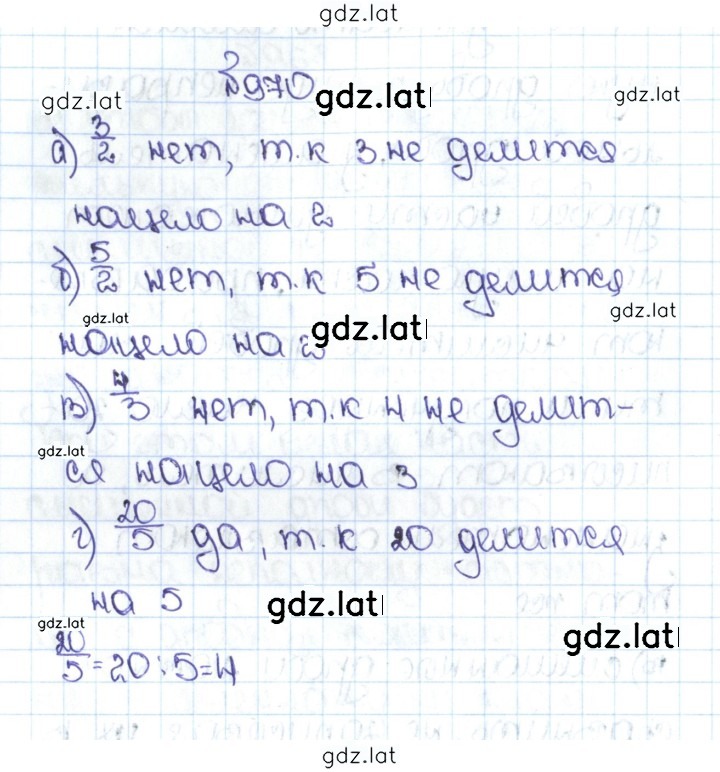 gdz.lat
№970
gdz.lat gdz.lat gdz.lat
а) 3/2 нет, т.к 3 не делится
нацело на 2
б) 5/2 нет, т.к 5 не делится
gdz.lat gdz.lat gdz.lat
нацело на 2
в) 4/3 нет, т.к 4 не делит-
gdz.lat
ся нацело на 3
г) 20/5 да, т.к 20 делится
на 5 gdz.lat
gdz.lat gdz.lat
20/5=20:5=4
gdz.lat